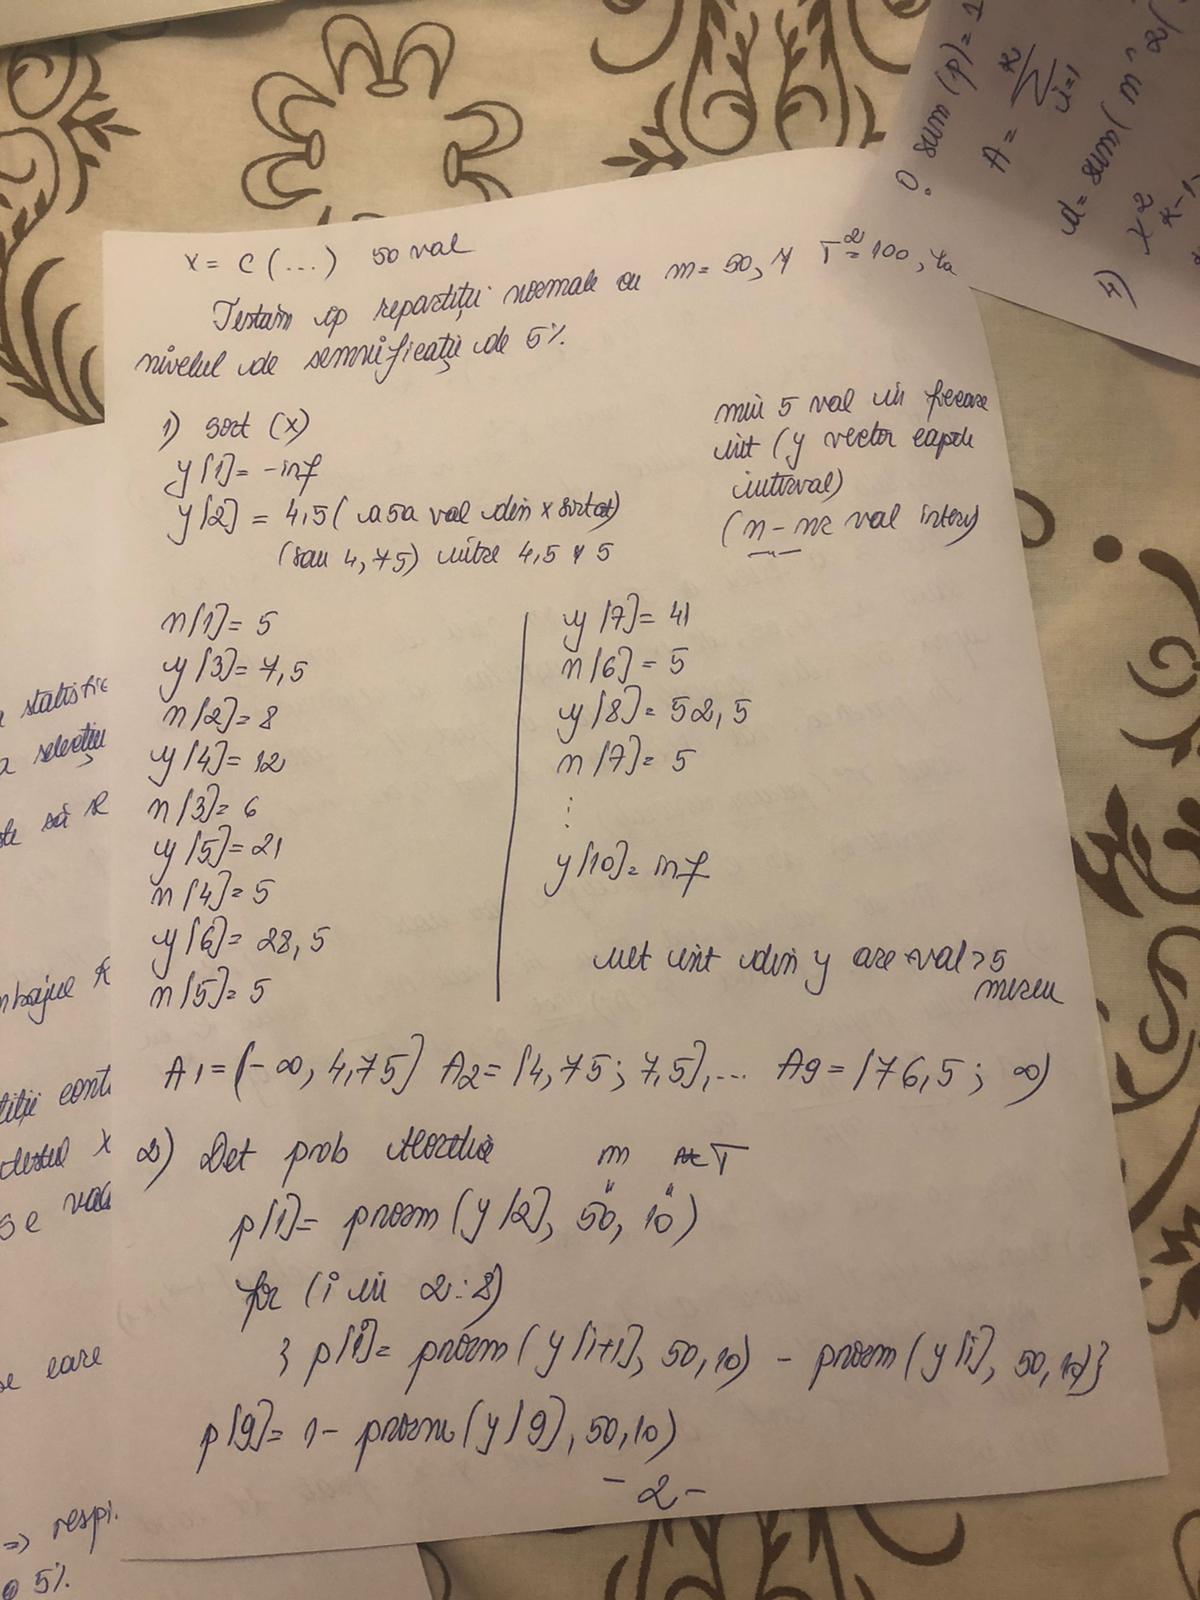 x = c (...) 50 val
Testăm ip repartiției normale cu m = 50, și T² = 100, la
nivelul de semnificație de 5%.
1) sort (x)
y[1] = -inf
y[2] = 4,5 ( a 5a val din x sortat)
(sau 4,75) între 4,5 și 5
min 5 val în fiecare
int (y vector capete
interval)
(n - nr val interv)
n[1] = 5
y[3] = 7,5
n[2] = 8
y[4] = 12
n[3] = 6
y[5] = 21
n[4] = 5
y[6] = 28,5
n[5] = 5
y[7] = 41
n[6] = 5
y[8] = 52,5
n[7] = 5
⋮
y[10] = inf
int din y are val > 5
mereu
A1 = (-∞, 4,75] A2 = [4,75; 7,5], ... A9 = [76,5; ∞)
2) Det prob m T
p[1] = pnorm (y[2], 50, 10)
for (i in 2:8)
{ p[i] = pnorm (y[i+1], 50, 10) - pnorm (y[i], 50, 10) }
p[9] = 1 - pnorm (y[9], 50, 10)
- 2 -
sum (p) = 1
A = k ∑ i=1
d = sum ( n^2 (
4) x2
k-1
a statistic
selecție
să
testul x
se
care
=> resp.
5%.